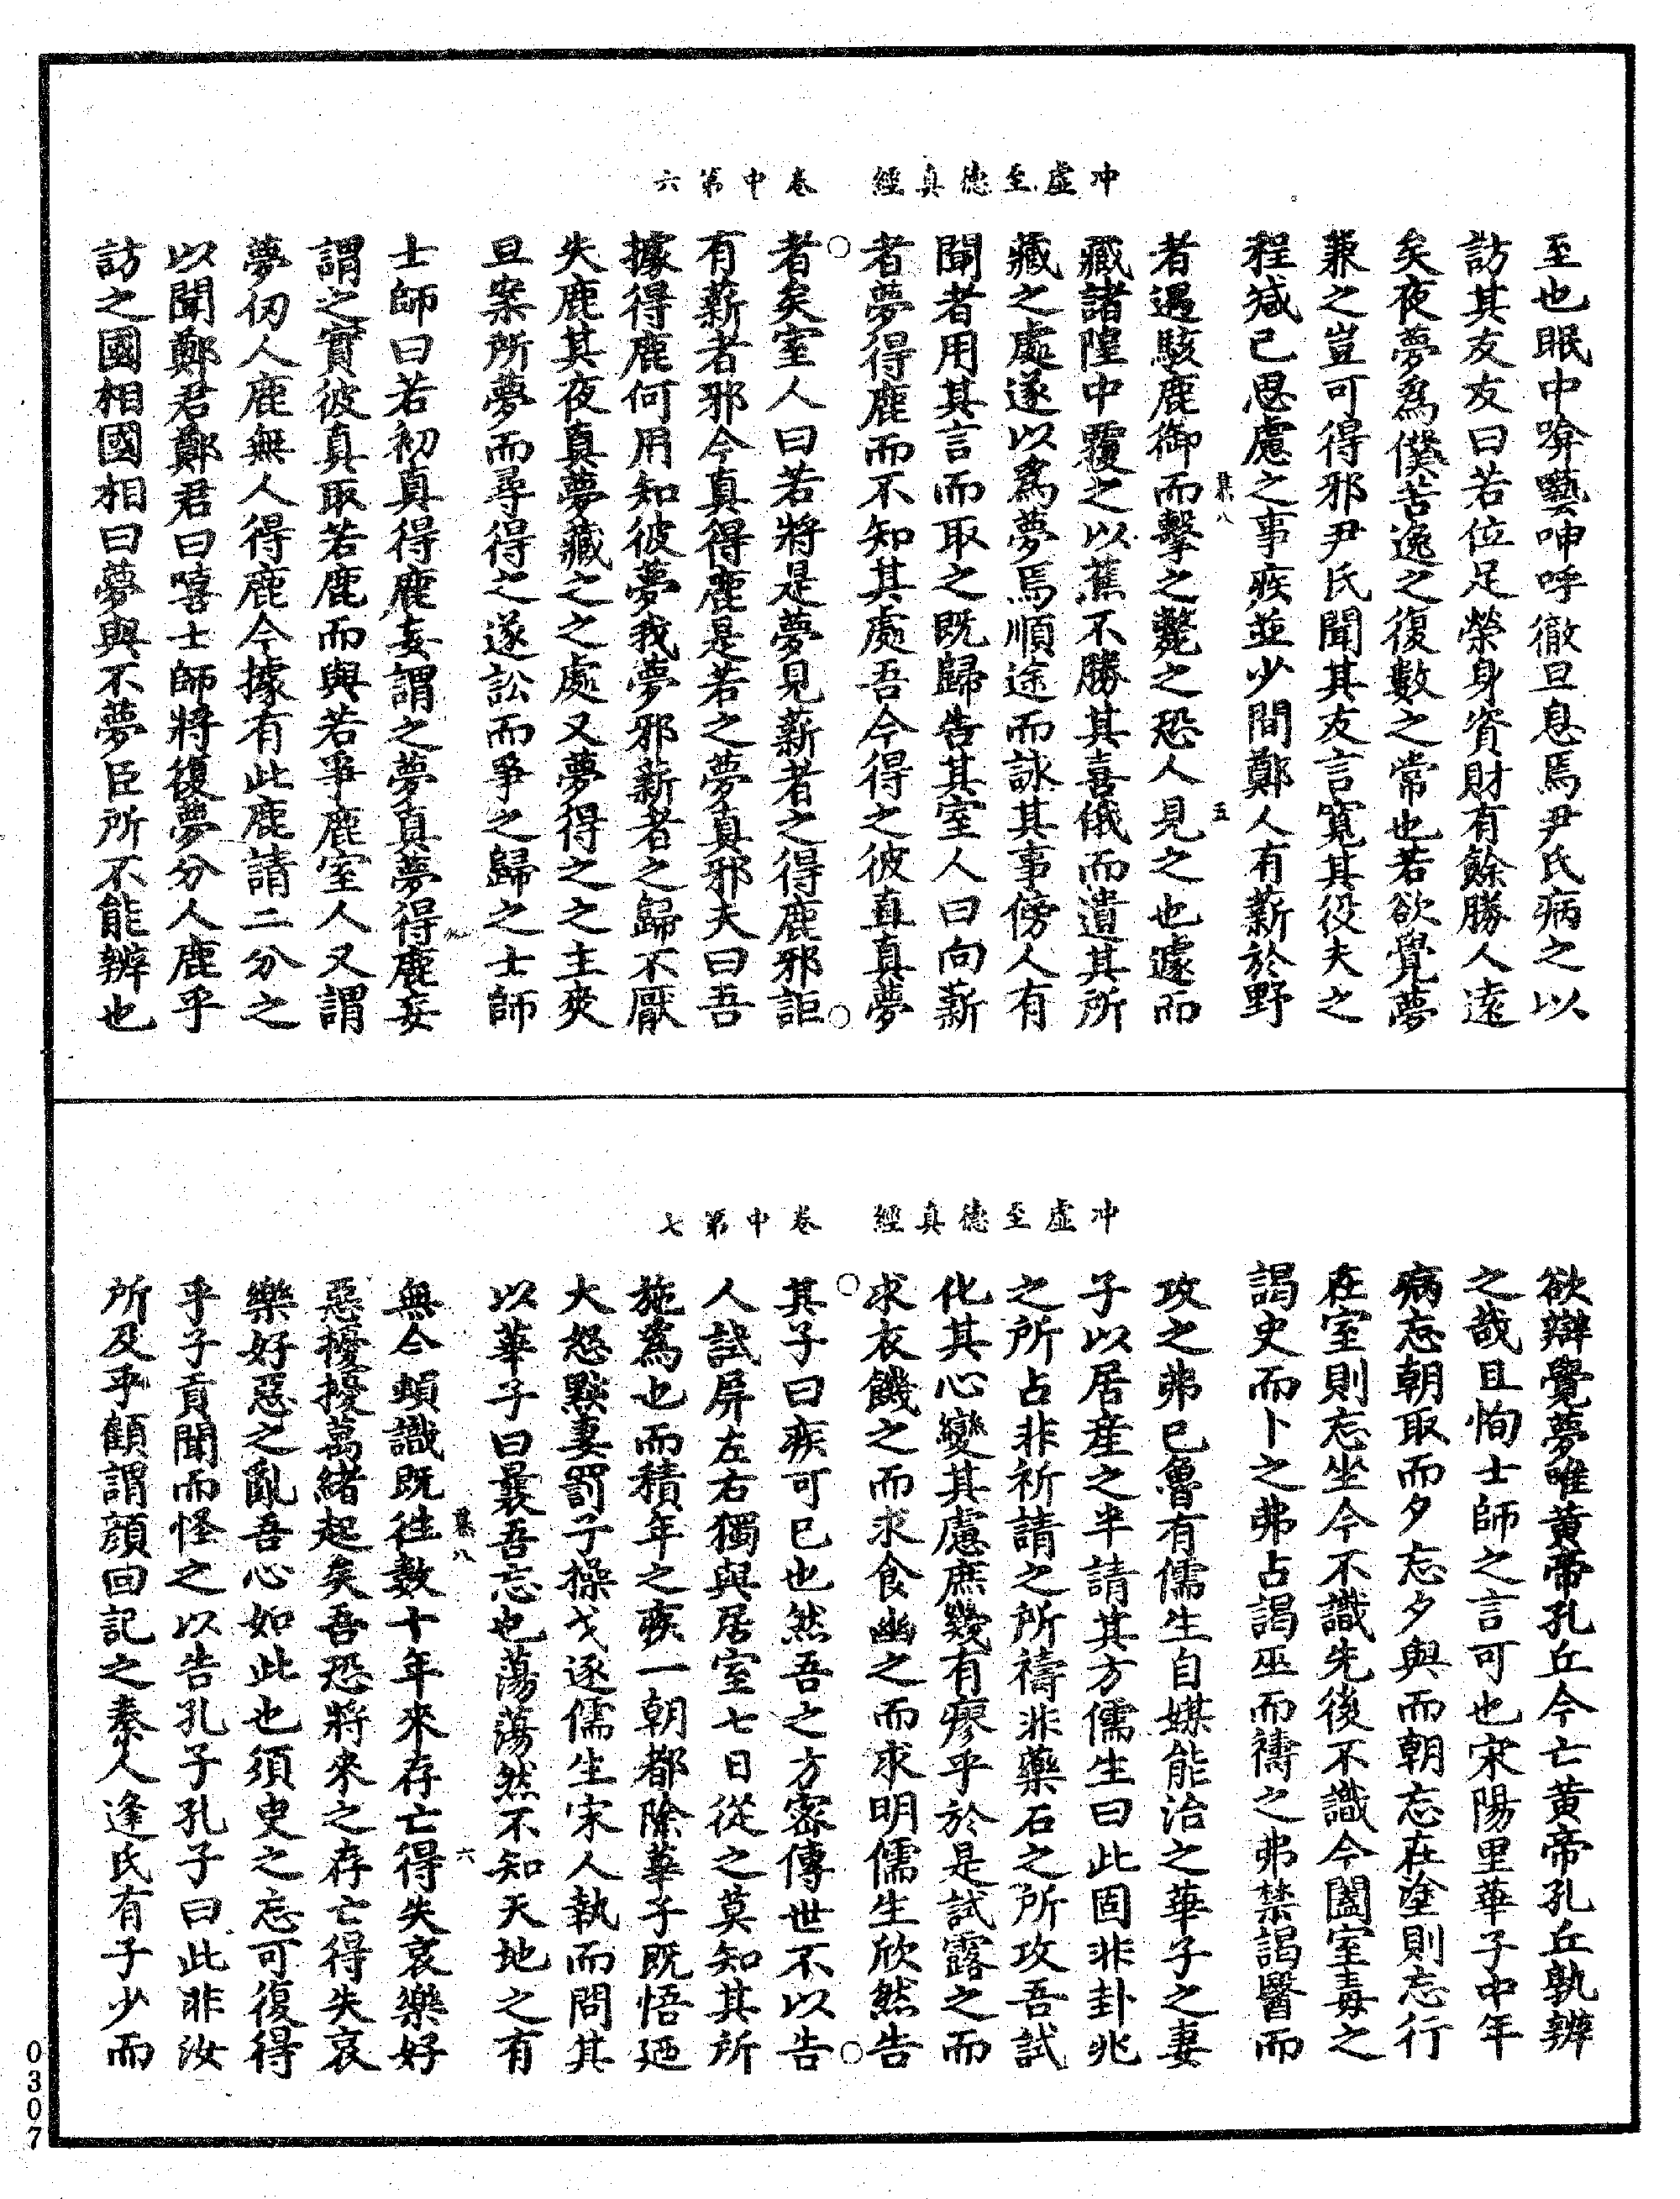 冲虛至德真經　卷中第六
至也眠中啽囈呻呼徹旦息焉尹氏病之以
訪其友友曰若位足榮身資財有餘勝人遠
矣夜夢為僕苦逸之復數之常也若欲覺夢
兼之豈可得邪尹氏聞其友言寬其役夫之
程減己思慮之事疾並少間鄭人有薪於野
慕八　五
者遇駭鹿御而擊之斃之恐人見之也遽而
藏諸隍中覆之以蕉不勝其喜俄而遺其所
藏之處遂以為夢焉順途而詠其事傍人有
聞者用其言而取之既歸告其室人曰向薪
者夢得鹿而不知其處吾今得之彼直真夢
者矣室人曰若將是夢見薪者之得鹿邪詎
有薪者邪今真得鹿是若之夢真邪夫曰吾
據得鹿何用知彼夢我夢邪薪者之歸不厭
失鹿其夜真夢藏之之處又夢得之之主爽
旦案所夢而尋得之遂訟而爭之歸之士師
士師曰若初真得鹿妄謂之夢真夢得鹿妄
謂之實彼真取若鹿而與若爭鹿室人又謂
夢仞人鹿無人得鹿今據有此鹿請二分之
以聞鄭君鄭君曰嘻士師將復夢分人鹿乎
訪之國相國相曰夢與不夢臣所不能辨也
冲虛至德真經　卷中第七
欲辯覺夢唯黃帝孔丘今亡黃帝孔丘孰辨
之哉且恂士師之言可也宋陽里華子中年
病忘朝取而夕忘夕與而朝忘在塗則忘行
在室則忘坐今不識先後不識今闔室毒之
謁史而卜之弗占謁巫而禱之弗禁謁醫而
攻之弗已魯有儒生自媒能治之華子之妻
子以居產之半請其方儒生曰此固非卦兆
之所占非祈請之所禱非藥石之所攻吾試
化其心變其慮庶幾有瘳乎於是試露之而
求衣饑之而求食幽之而求明儒生欣然告
其子曰疾可已也然吾之方密傳世不以告
人試屏左右獨與居室七日從之莫知其所
施為也而積年之疾一朝都除華子既悟迺
大怒黜妻罰子操戈逐儒生宋人執而問其
以華子曰曩吾忘也蕩蕩然不知天地之有
慕八　六
無今頓識既往數十年來存亡得失哀樂好
惡擾擾萬緒起矣吾恐將來之存亡得失哀
樂好惡之亂吾心如此也須臾之忘可復得
乎子貢聞而怪之以告孔子孔子曰此非汝
所及乎顧謂顏回記之秦人逢氏有子少而
0307